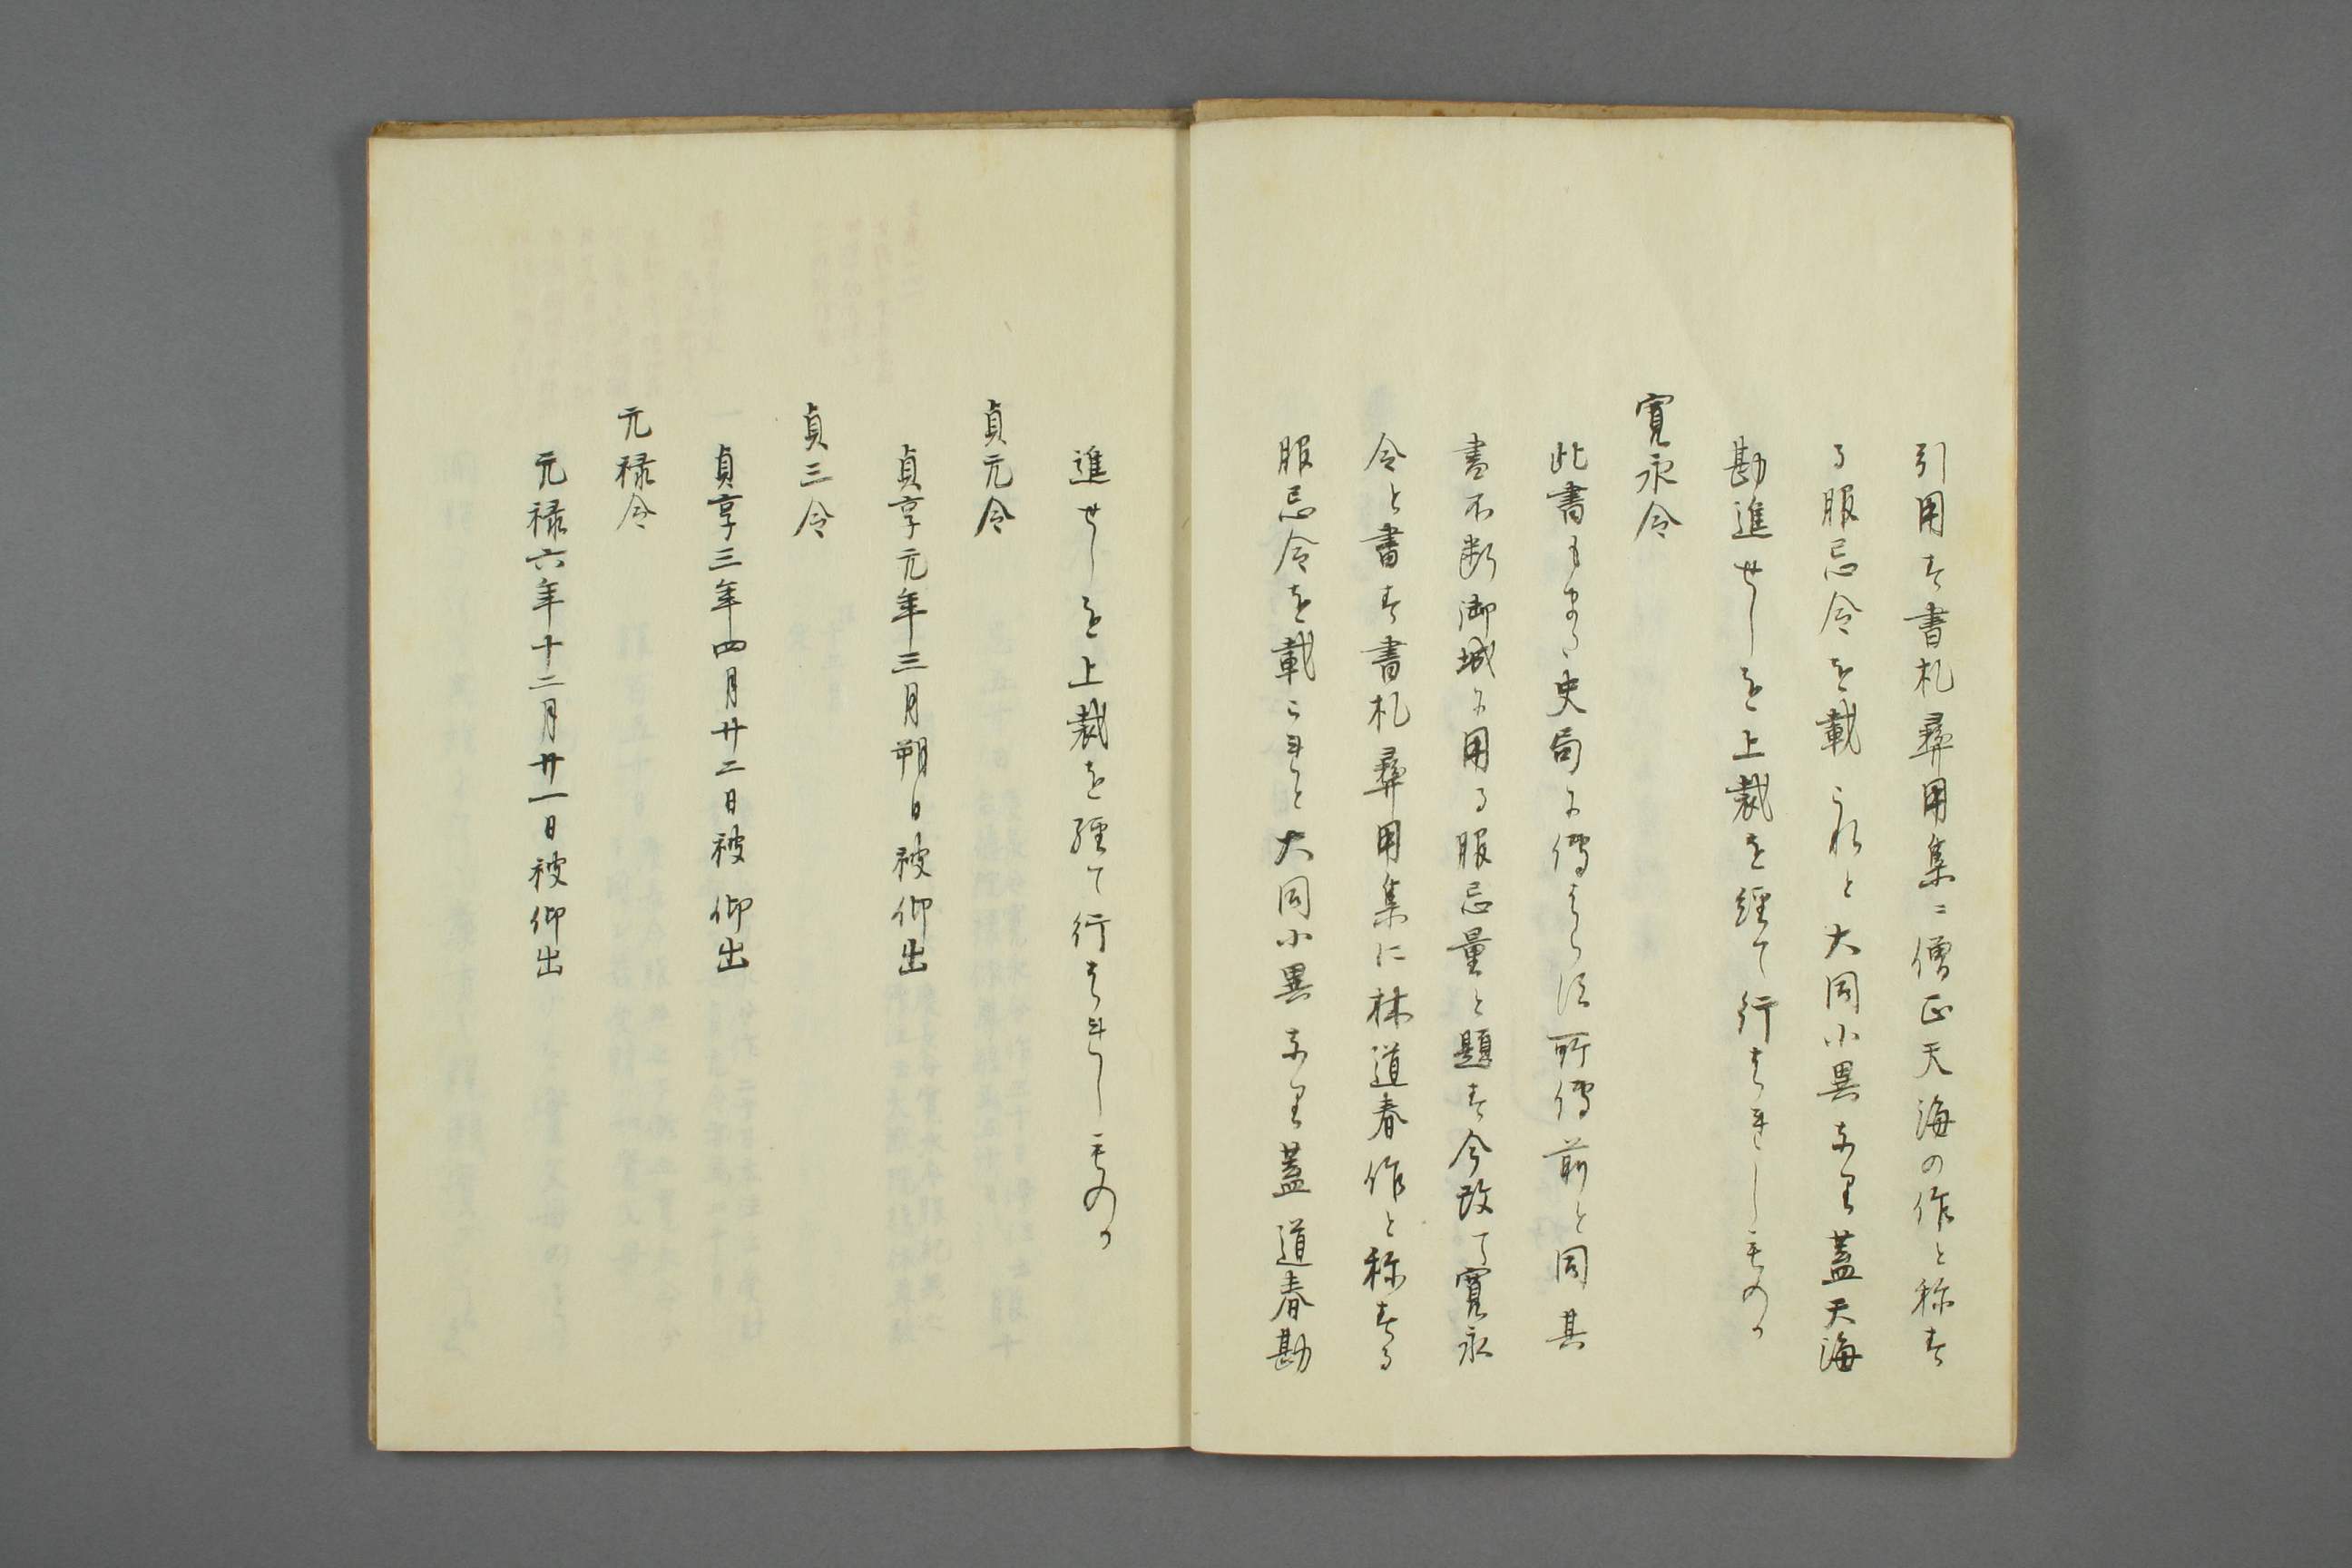 引用す書札彝用集ニ僧正天海の作と称す
る服忌令を載られと大同小異なり蓋天海
勘進せしを上裁を経て行はれしものか
寛永令
此書もまた史局に傳はらす所傳前と同其
書不断御城に用る服忌量と題す今改て寛永
令と書す書札彝用集に林道春作と称する
服忌令を載られと大同小異なり蓋道春勘
進せしを上裁を経て行はれしものか
貞元令
貞享元年三月朔日被仰出
貞三令
貞享三年四月廿二日被仰出
元禄令
元禄六年十二月廿一日被仰出